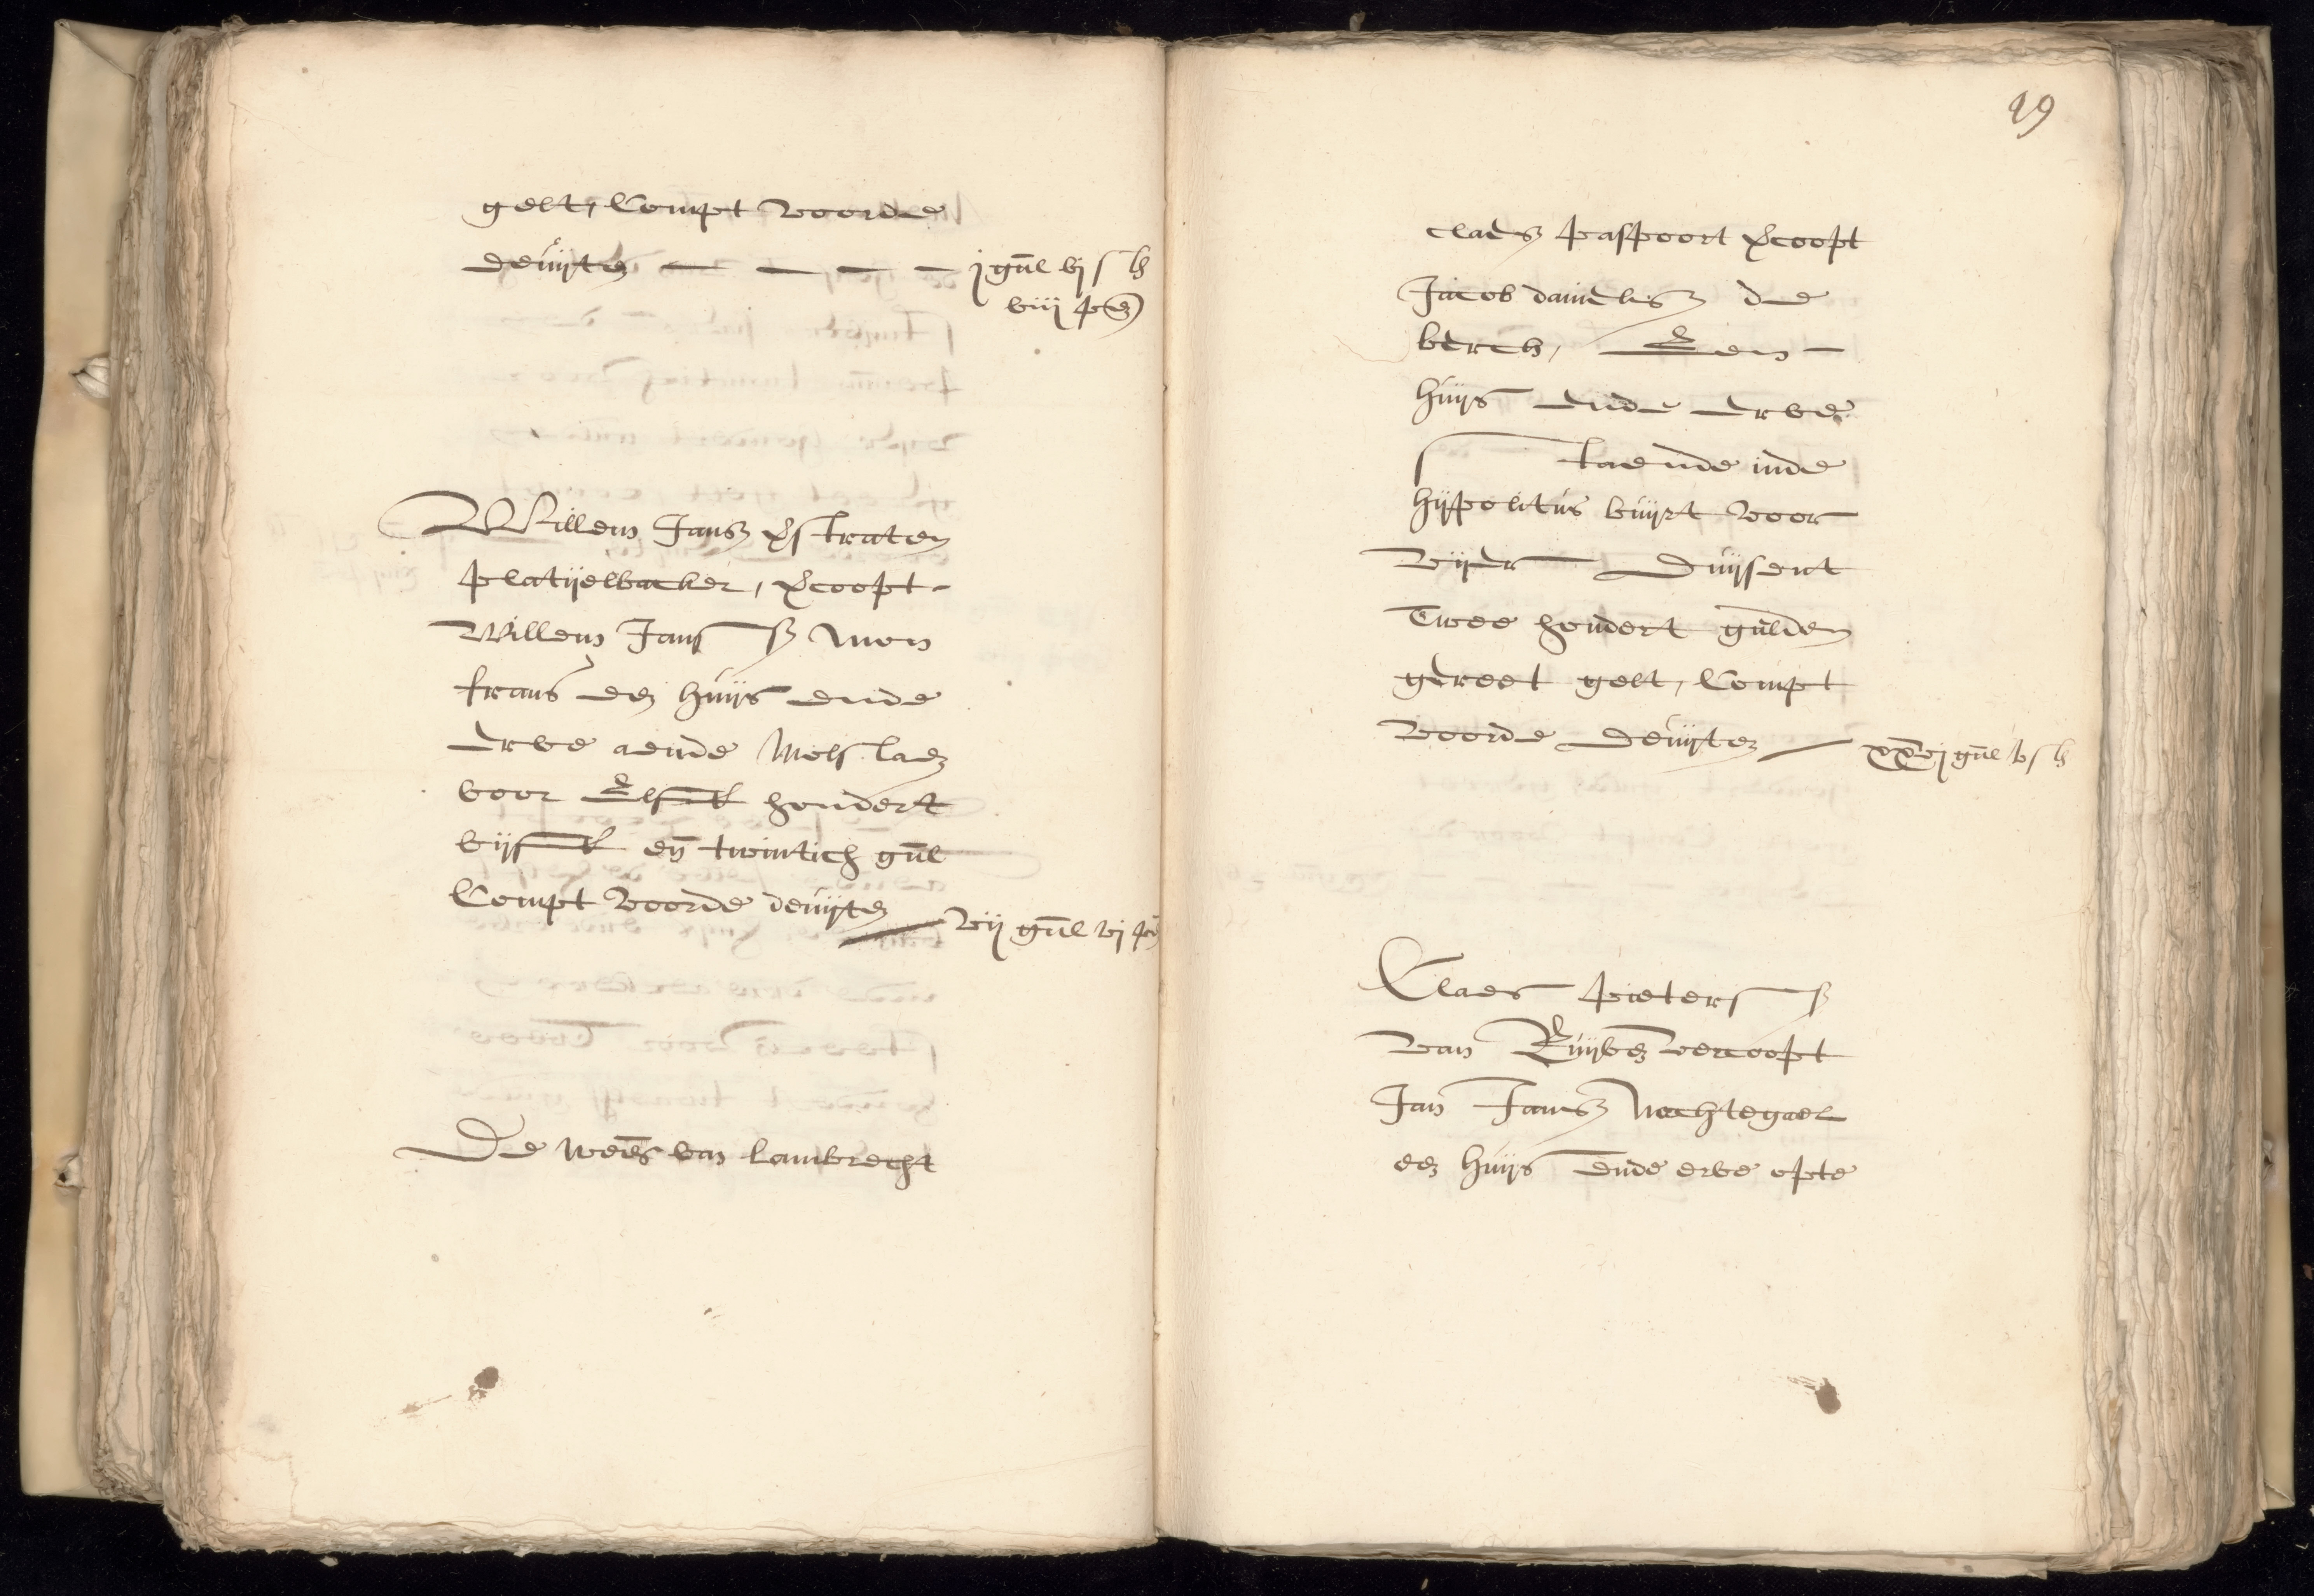 gelt, Compt voorde
deuijten — — — — j gul vj s h
viij pen
Willem Jansz vstraten
platijelbacker, vcoopt
Willem Jans sz Mon
frans een huijs ende
erve aende Molslaen
voor Elff hondert
vijff en twintich gul
Compt voorde deuijten — vij gul vj pen
De weeś van lambrecht
49
claesz paspoort vcoopt
Jacob danielsz de
berch, Een
huijs ende erve
staende inde
hijpolitus buijrt voor
vijer duijsent
Twee hondert gulden
gereet gelt, Compt
voorde deuijten — xxvj gul v s h
Claes pieters sz
van Ruijven vercoopt
Jan Jansz Nachtegael
een huijs ende erve opte